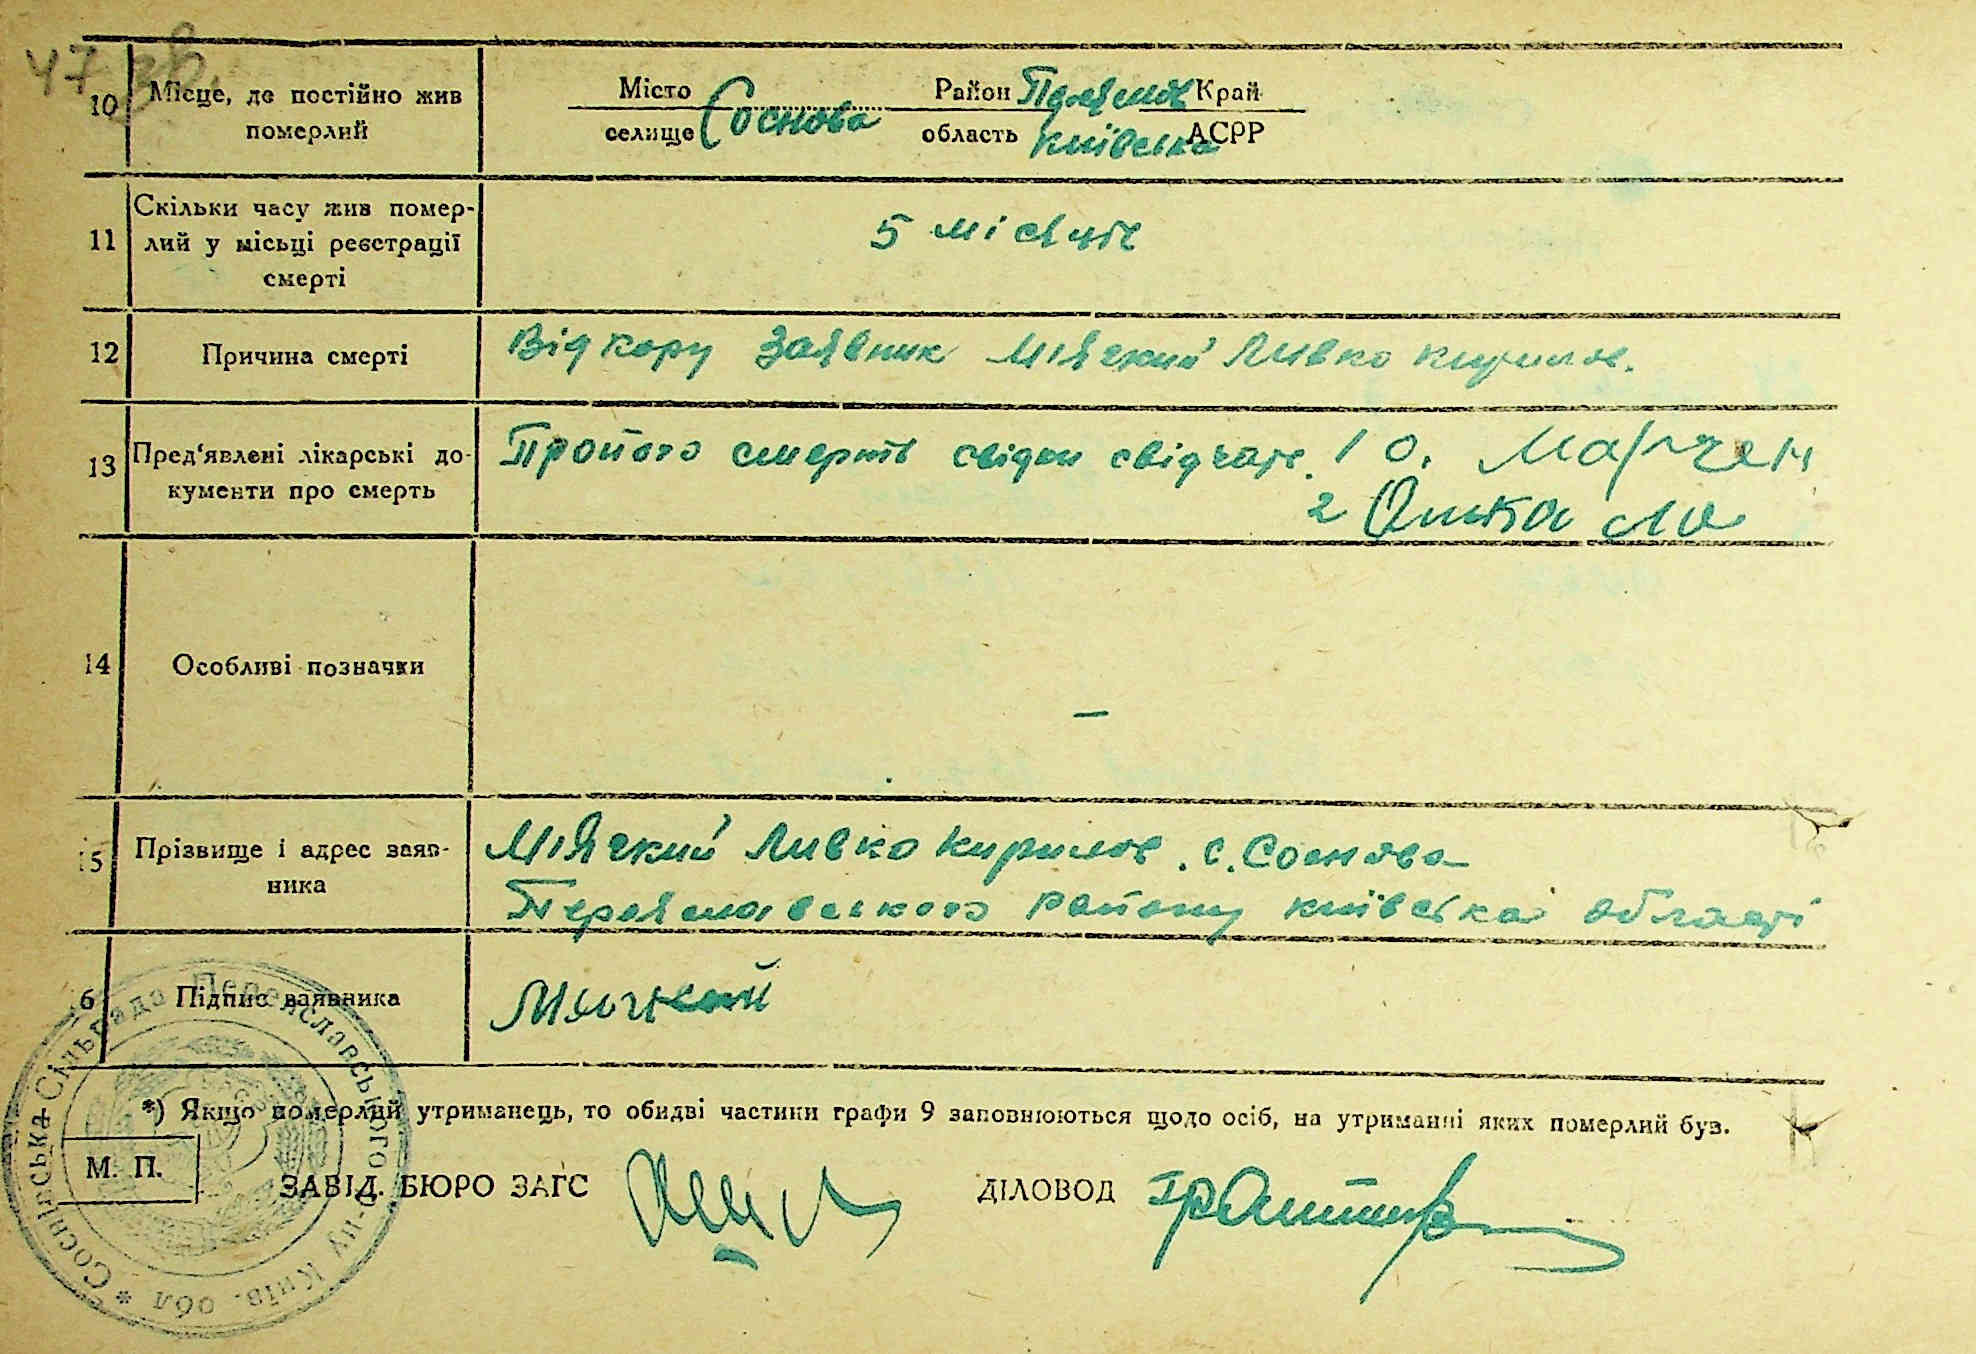 47 зв.
10 Місце, де постійно жив померлий
Місто Район Переяслав Край
селище Соснова область Київська АСРР
11 Скільки часу жив помер-
лий у місьці реєстрації
смерті
5 місяців
12 Причина смерті
Від кору Заявник Міячкий Ливко Кирилов.
13 Пред'явлені лікарські до-
кументи про смерть
Пройого смерть свідки свідчать. 1 О. Марчен
2
14 Особливі позначки
–
15 Прізвище і адрес заяв-
ника
Міячкий Ливко Кирилов. с. Соснова
Переяславського району Київської області
6 Підпис заявника
Мячкий
*) Якщо померлий утриманець, то обидві частини графи 9 заповнюються щодо осіб, на утриманні яких померлий був.
М. П.
ЗАВІД. БЮРО ЗАГС ДІЛОВОД
Соснівська Сільрада Переяславського р-ну Київ. обл *